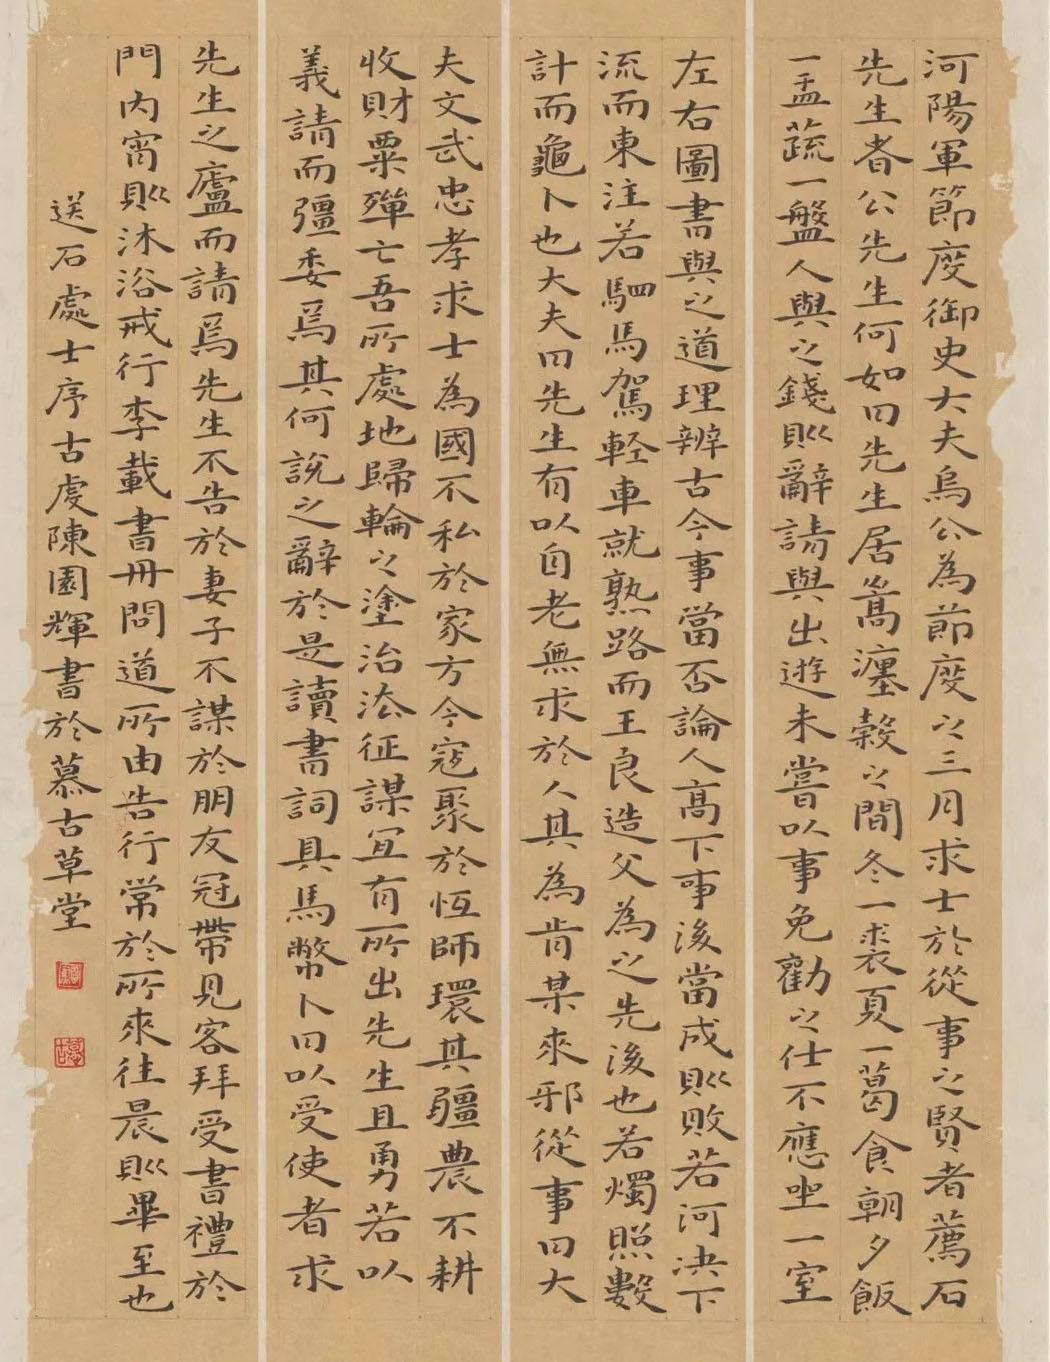 河陽軍節度御史大夫烏公為節度之三月求士於從事之賢者薦石
先生者公先生何如曰先生居嵩瀍穀之間冬一裘夏一葛食朝夕飯
一盂蔬一盤人與之錢則辭請與出遊未嘗以事免勸之仕不應坐一室
左右圖書與之道理辨古今事當否論人高下事後當成則敗若河決下
流而東注若駟馬駕輕車就熟路而王良造父為之先後也若燭照數
計而龜卜也大夫曰先生有以自老無求於人其為肯某來邪從事曰大
夫文武忠孝求士為國不私於家方今寇聚於恆師環其疆農不耕
收財粟殫亡吾所處地歸輪之塗治法征謀宜有所出先生且勇若以
義請而彊委焉其何說之辭於是讀書詞具馬幣卜曰以受使者求
先生之廬而請焉先生不告於妻子不謀於朋友冠帶見客拜受書禮於
門內宵則沐浴戒行李載書冊問道所由告行常於所來往晨則畢至也
送石處士序古虔陳園輝書於慕古草堂